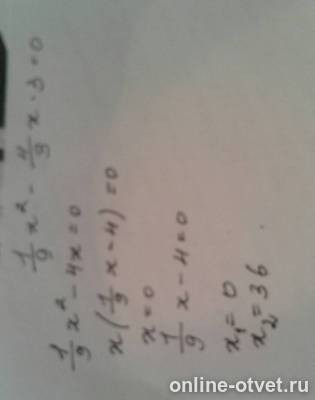 1/9 x² - 4/3 x · 3 = 0
1/9 x² - 4x = 0
x(1/9 x - 4) = 0
x = 0
1/9 x - 4 = 0
x₁ = 0
x₂ = 36.
online-otvet.ru